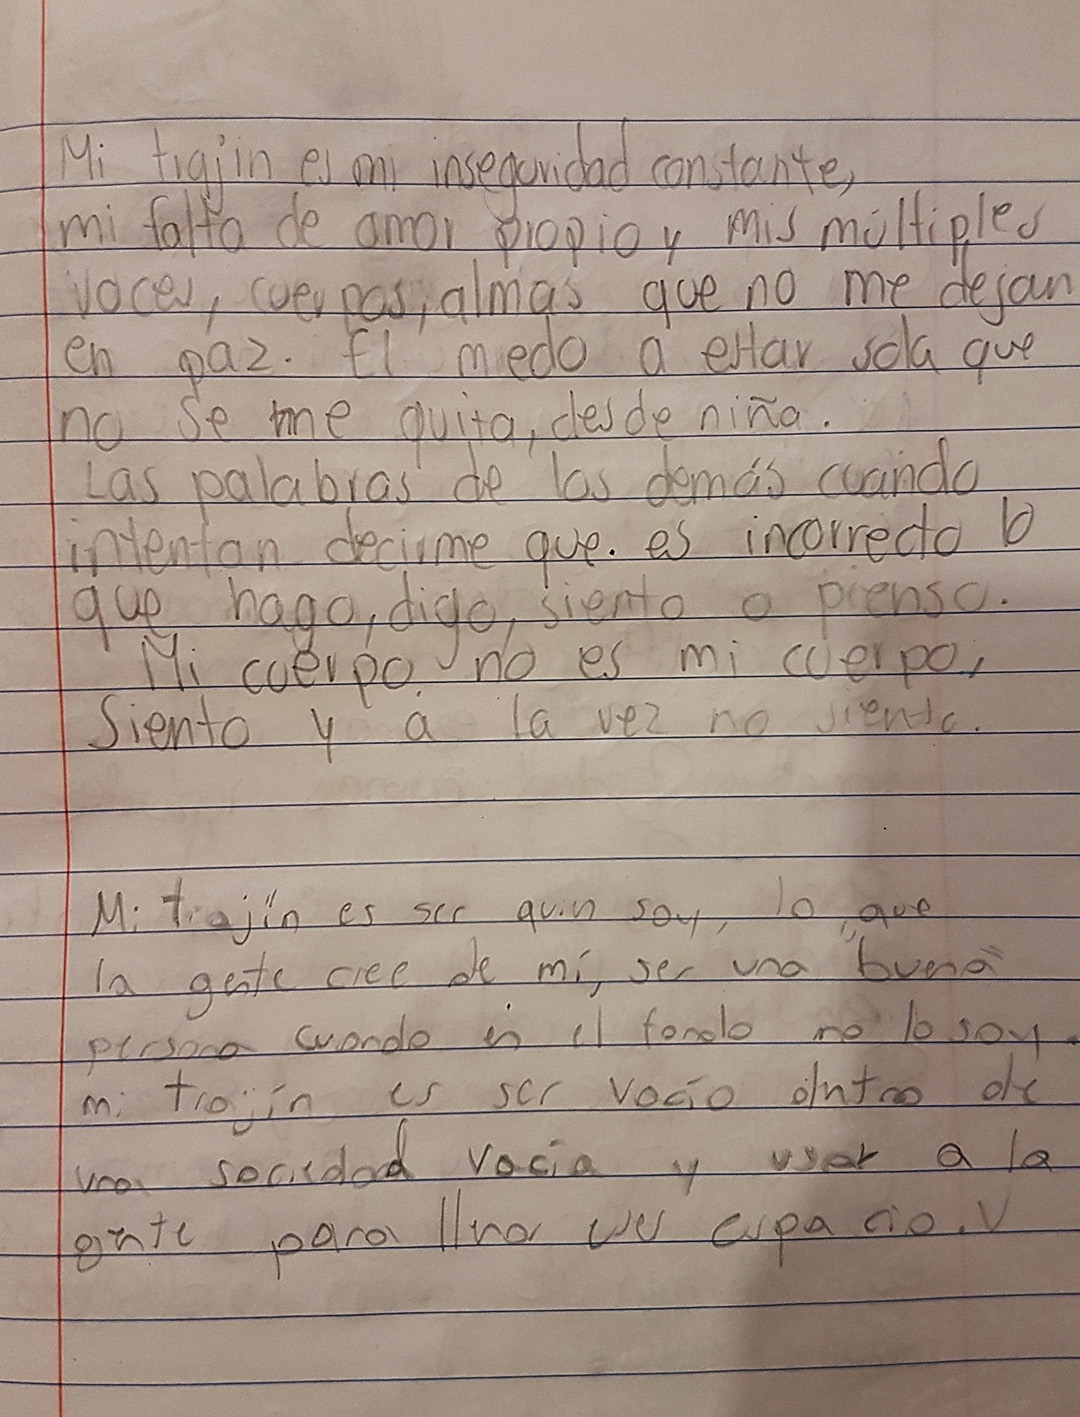 Mi trajin es mi inseguridad constante,
mi falta de amor propio y mis múltiples
voces, cuerpos, almas que no me dejan
en paz. El medo a estar sola que
no se me quita, desde niña.
Las palabras de los demás cuando
intentan decirme que. es incorrecto lo
que hago, digo, siento o pienso.
Mi cuerpo no es mi cuerpo,
Siento y a la vez no siento.
Mi trajín es ser quin soy, lo que
la gente cree de mí, ser una "buena"
persona cuando en el fondo no lo soy.
mi trajín es ser vacío dntro de
una sociedad vacía y usar a la
gente para llnar espacio.